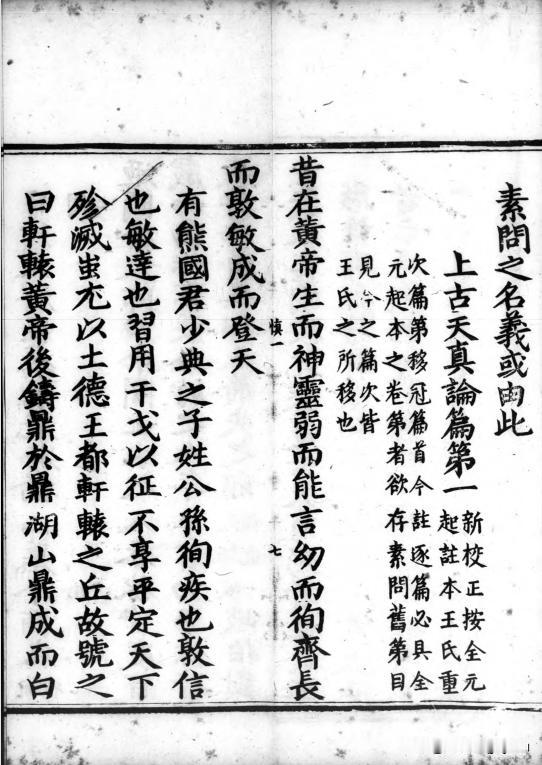 素問之名義或由此
上古天真論篇第一
新校正按全元
起註本王氏重
次篇第移冠篇首今註逐篇必具全
元起本之卷第者欲存素問舊第目
見今之篇次皆
王氏之所移也
昔在黃帝生而神靈弱而能言幼而徇齊長
慎一
十七
而敦敏成而登天
有熊國君少典之子姓公孫徇疾也敦信
也敏達也習用干戈以征不享平定天下
殄滅蚩尤以土德王都軒轅之丘故號之
曰軒轅黃帝後鑄鼎於鼎湖山鼎成而白